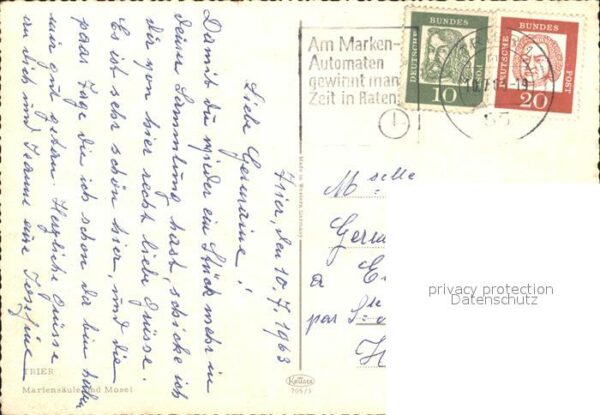 Am Marken-
Automaten
gewinnt man
Zeit in Raten
DEUTSCHE
BUNDES
POST
10
DEUTSCHE
BUNDES
POST
20
Trier, den 10.7.1963
Liebe Germaine!
Damit du wieder ein Stück mehr in
deine Sammlung hast, schicke ich
dir von hier recht liebe Grüsse.
Es ist sehr schön hier, und die
paar Tage die ich schon da bin haben
mir gut getan. Herzliche Grüsse
an dich und Jeanne eure Josefine
Made in Western Germany
Mselle
Germ
a E
par S
privacy protection
Datenschutz
TRIER
Mariensäule und Mosel
Krüger
705/3